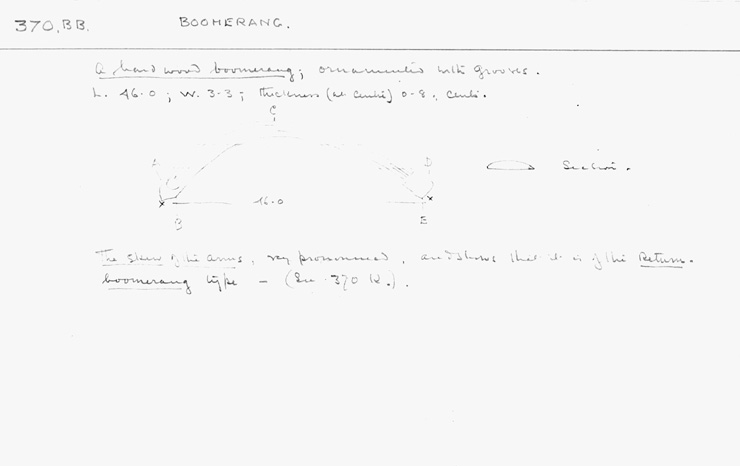 370, BB. BOOMERANG.
A hard wood boomerang; ornamented with grooves.
L. 46.0; W. 3.3; thickness (at centre) 0.8. cents.
C
A D
Section.
46.0
B E
The skew of the arms, very pronounced, and shows that it is of the Return-
boomerang type - (See 370 R.).